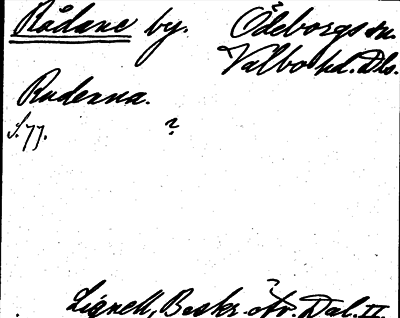 Rådane by. Ödeborgs sn.
Valbo hd. Dls.
Rudenna.
S. 77. ?
Lignell, Beskr. öfv. Dal. II.